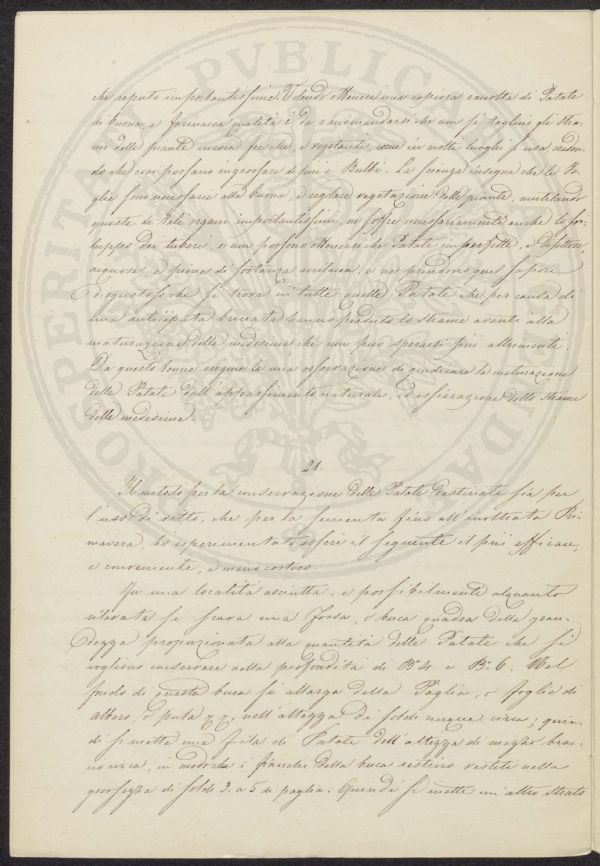 che reputo importantissime. Volendo ottenere una copiosa raccolta di Patate
di buona, e farinacea qualità è da raccomandarsi che non si taglino gli Stra-
mi delle piante ancora fresche, e vegetanti, come in molti luoghi s'usa, creden-
do che così possano ingrossare di più i Bulbi. La scienza insegna che le Fo-
glie sono necessarie alla buona, e regolare vegetazione delle piante, mutilando
queste di tali organi importantissimi, ne soffre necessariamente anche lo svi-
luppo dei tuberi, e non possono ottenersi che Patate imperfette, e difettose,
acquose, e prive di sostanza, e ne prendono quel sapore
disgustoso che si trova in tutte quelle Patate che per causa di
una anticipata brinata hanno perduto lo strame avanti alla
maturazione delle medesime che non può sperarsi più altrimenti.
Da questo trae origine la mia osservazione di giudicare la maturazione
delle Patate dall'appassimento naturale, ed essicazione dello strame
delle medesime.
21.
Il metodo per la conservazione delle Patate destinate sia per
l'uso di vitto, che per la sementa fino all'inoltrata Pri-
mavera, ho esperimentato essere il seguente il più efficace,
e conveniente, e meno costoso.
In una località asciutta, e possibilmente alquanto
rilevata si scava una fossa, o buca quadra della gran-
dezza proporzionata alla quantità delle Patate che si
vogliono conservare nella profondità di Bª 4. a Bª 6. Nel
fondo di questa buca si allarga della Paglia, o foglie di
albero, o pula, nell'altezza di soldi cinque circa; quin-
di si mette una fila di Patate dell'altezza di mezzo brac-
cio circa, in modo che i fianchi della buca restino vestiti nella
grossezza di soldi 3. a 5 di paglia. Quindi si mette un'altro strato